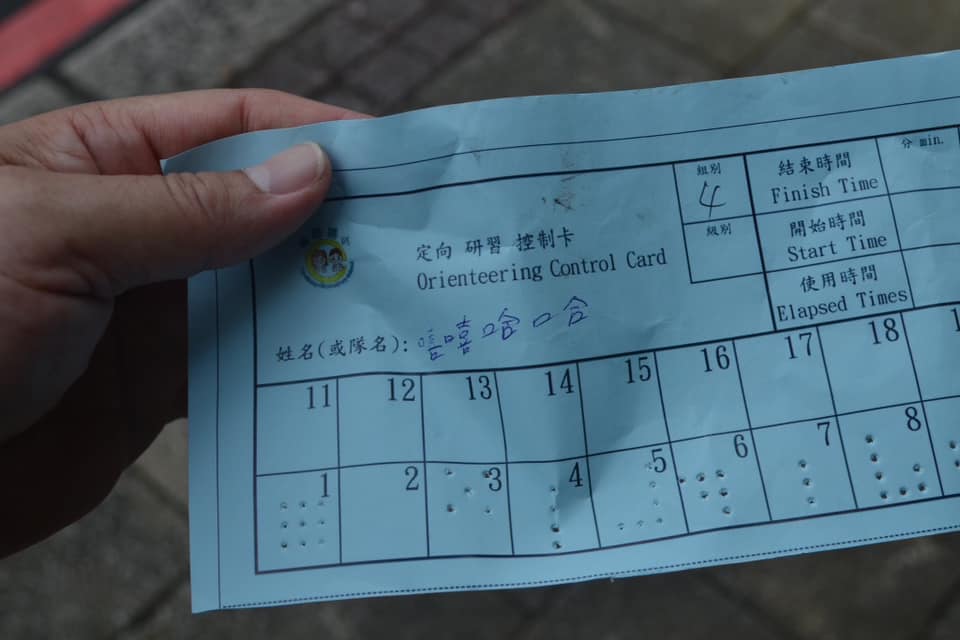 定向 研習 控制卡
Orienteering Control Card
姓名(或隊名): 嘻嘻哈哈
組別
4
級別
結束時間
Finish Time
分 min.
開始時間
Start Time
使用時間
Elapsed Times
11 12 13 14 15 16 17 18
1 2 3 4 5 6 7 8